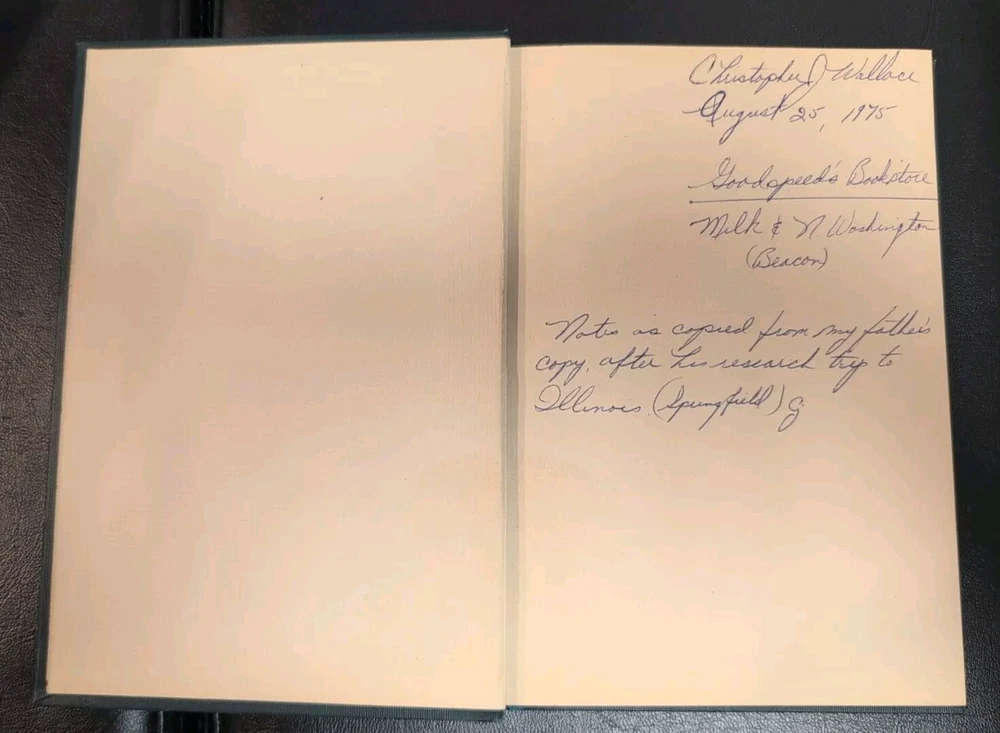 Christopher J Wallace
August 25, 1975
Goodspeed's Bookstore
Milk & N Washington
(Beacon)
Notes as copied from my father's
copy, after his research trip to
Illinois. (Springfield)